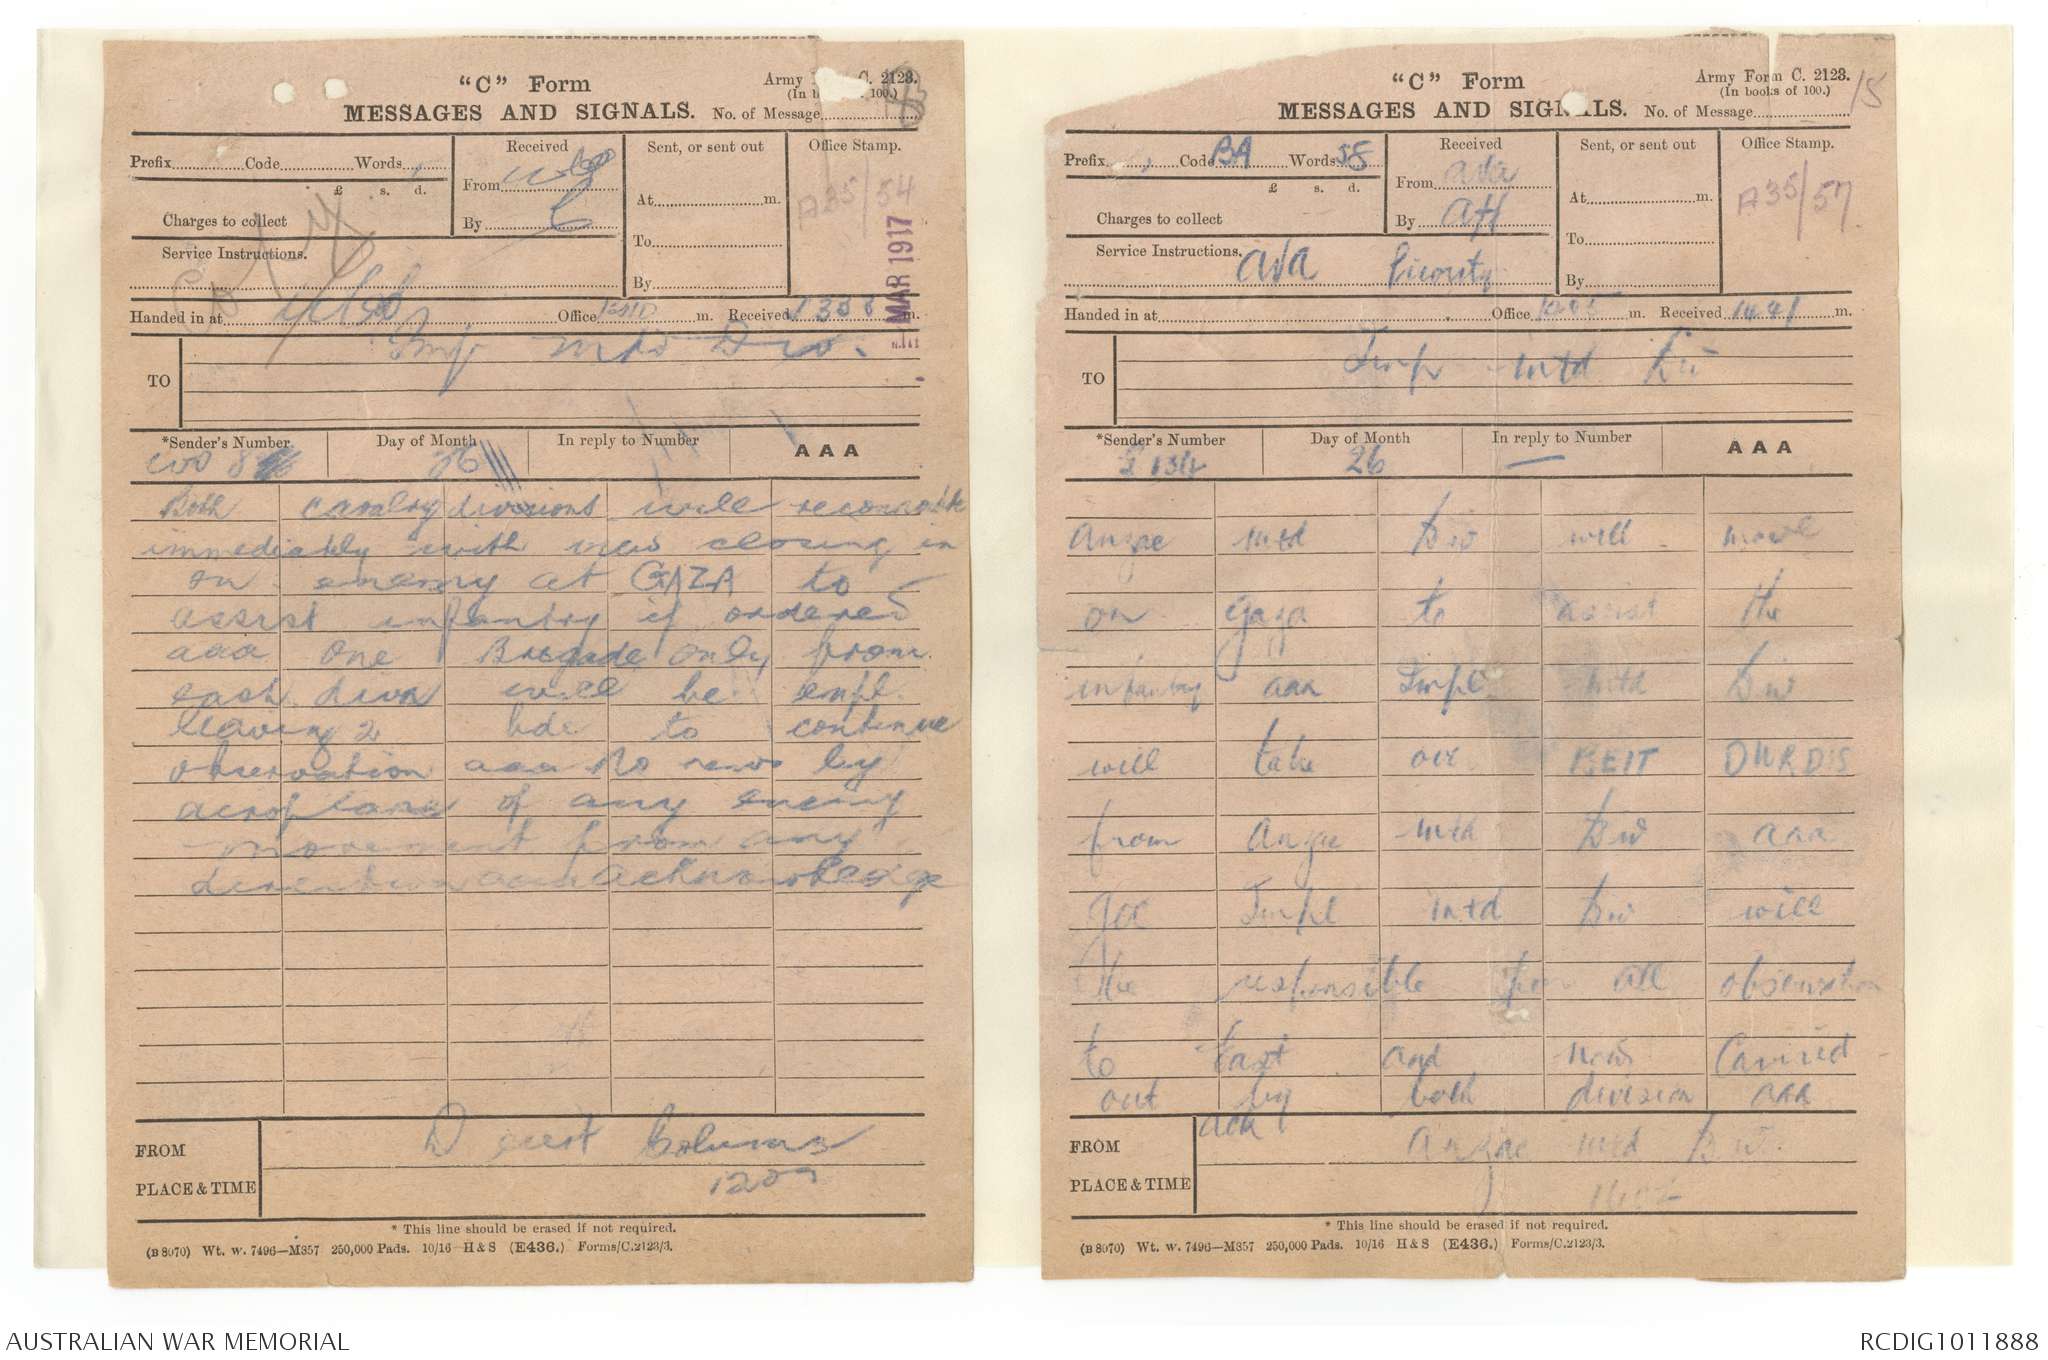 "C" Form
MESSAGES AND SIGNALS.
Army Form C. 2123.
(In books of 100.)
No. of Message
Prefix Code Words
£ s. d.
Charges to collect
Service Instructions.
Received
From
By
Sent, or sent out
At m.
To
By
Office Stamp.
A35/54
MAR 1917
Handed in at Office m. Received 1338 m.
TO Imp Mtd Div.
*Sender's Number Day of Month In reply to Number AAA
26
Both cavalry divisions will reconnoitre
immediately with view closing in
on enemy at GAZA to
assist infantry if ordered
aaa One Brigade only from
each divn will be empl.
leaving 2 bde to continue
observation aaa No news by
aeroplane of any enemy
movement from any
direction aaa acknowledge
FROM Desert Column
PLACE & TIME 1207
* This line should be erased if not required.
(B 8070) Wt. w. 7496—M857 250,000 Pads. 10/16 H & S (E436.) Forms/C.2123/3.
"C" Form
MESSAGES AND SIGNALS.
Army Form C. 2123.
(In books of 100.)
No. of Message
15
Prefix Code BA Words 58
£ s. d.
Charges to collect
Service Instructions. ada Priority
Received
From ada
By
Sent, or sent out
At m.
To
By
Office Stamp.
A35/57
Handed in at Office m. Received 1441 m.
TO Imp Mtd Div
*Sender's Number Day of Month In reply to Number AAA
26 —
Anzac mtd Div will move
on Gaza to assist the
infantry aaa Impl mtd Div
will take over BEIT DURDIS
from Anzac mtd Div aaa
Goc Impl mtd Div will
be responsible for all observation
to East and now Carried
out by both division aaa
FROM ack Anzac mtd Div.
PLACE & TIME
* This line should be erased if not required.
(B 8070) Wt. w. 7496—M857 250,000 Pads. 10/16 H & S (E436.) Forms/C.2123/3.
AUSTRALIAN WAR MEMORIAL
RCDIG1011888